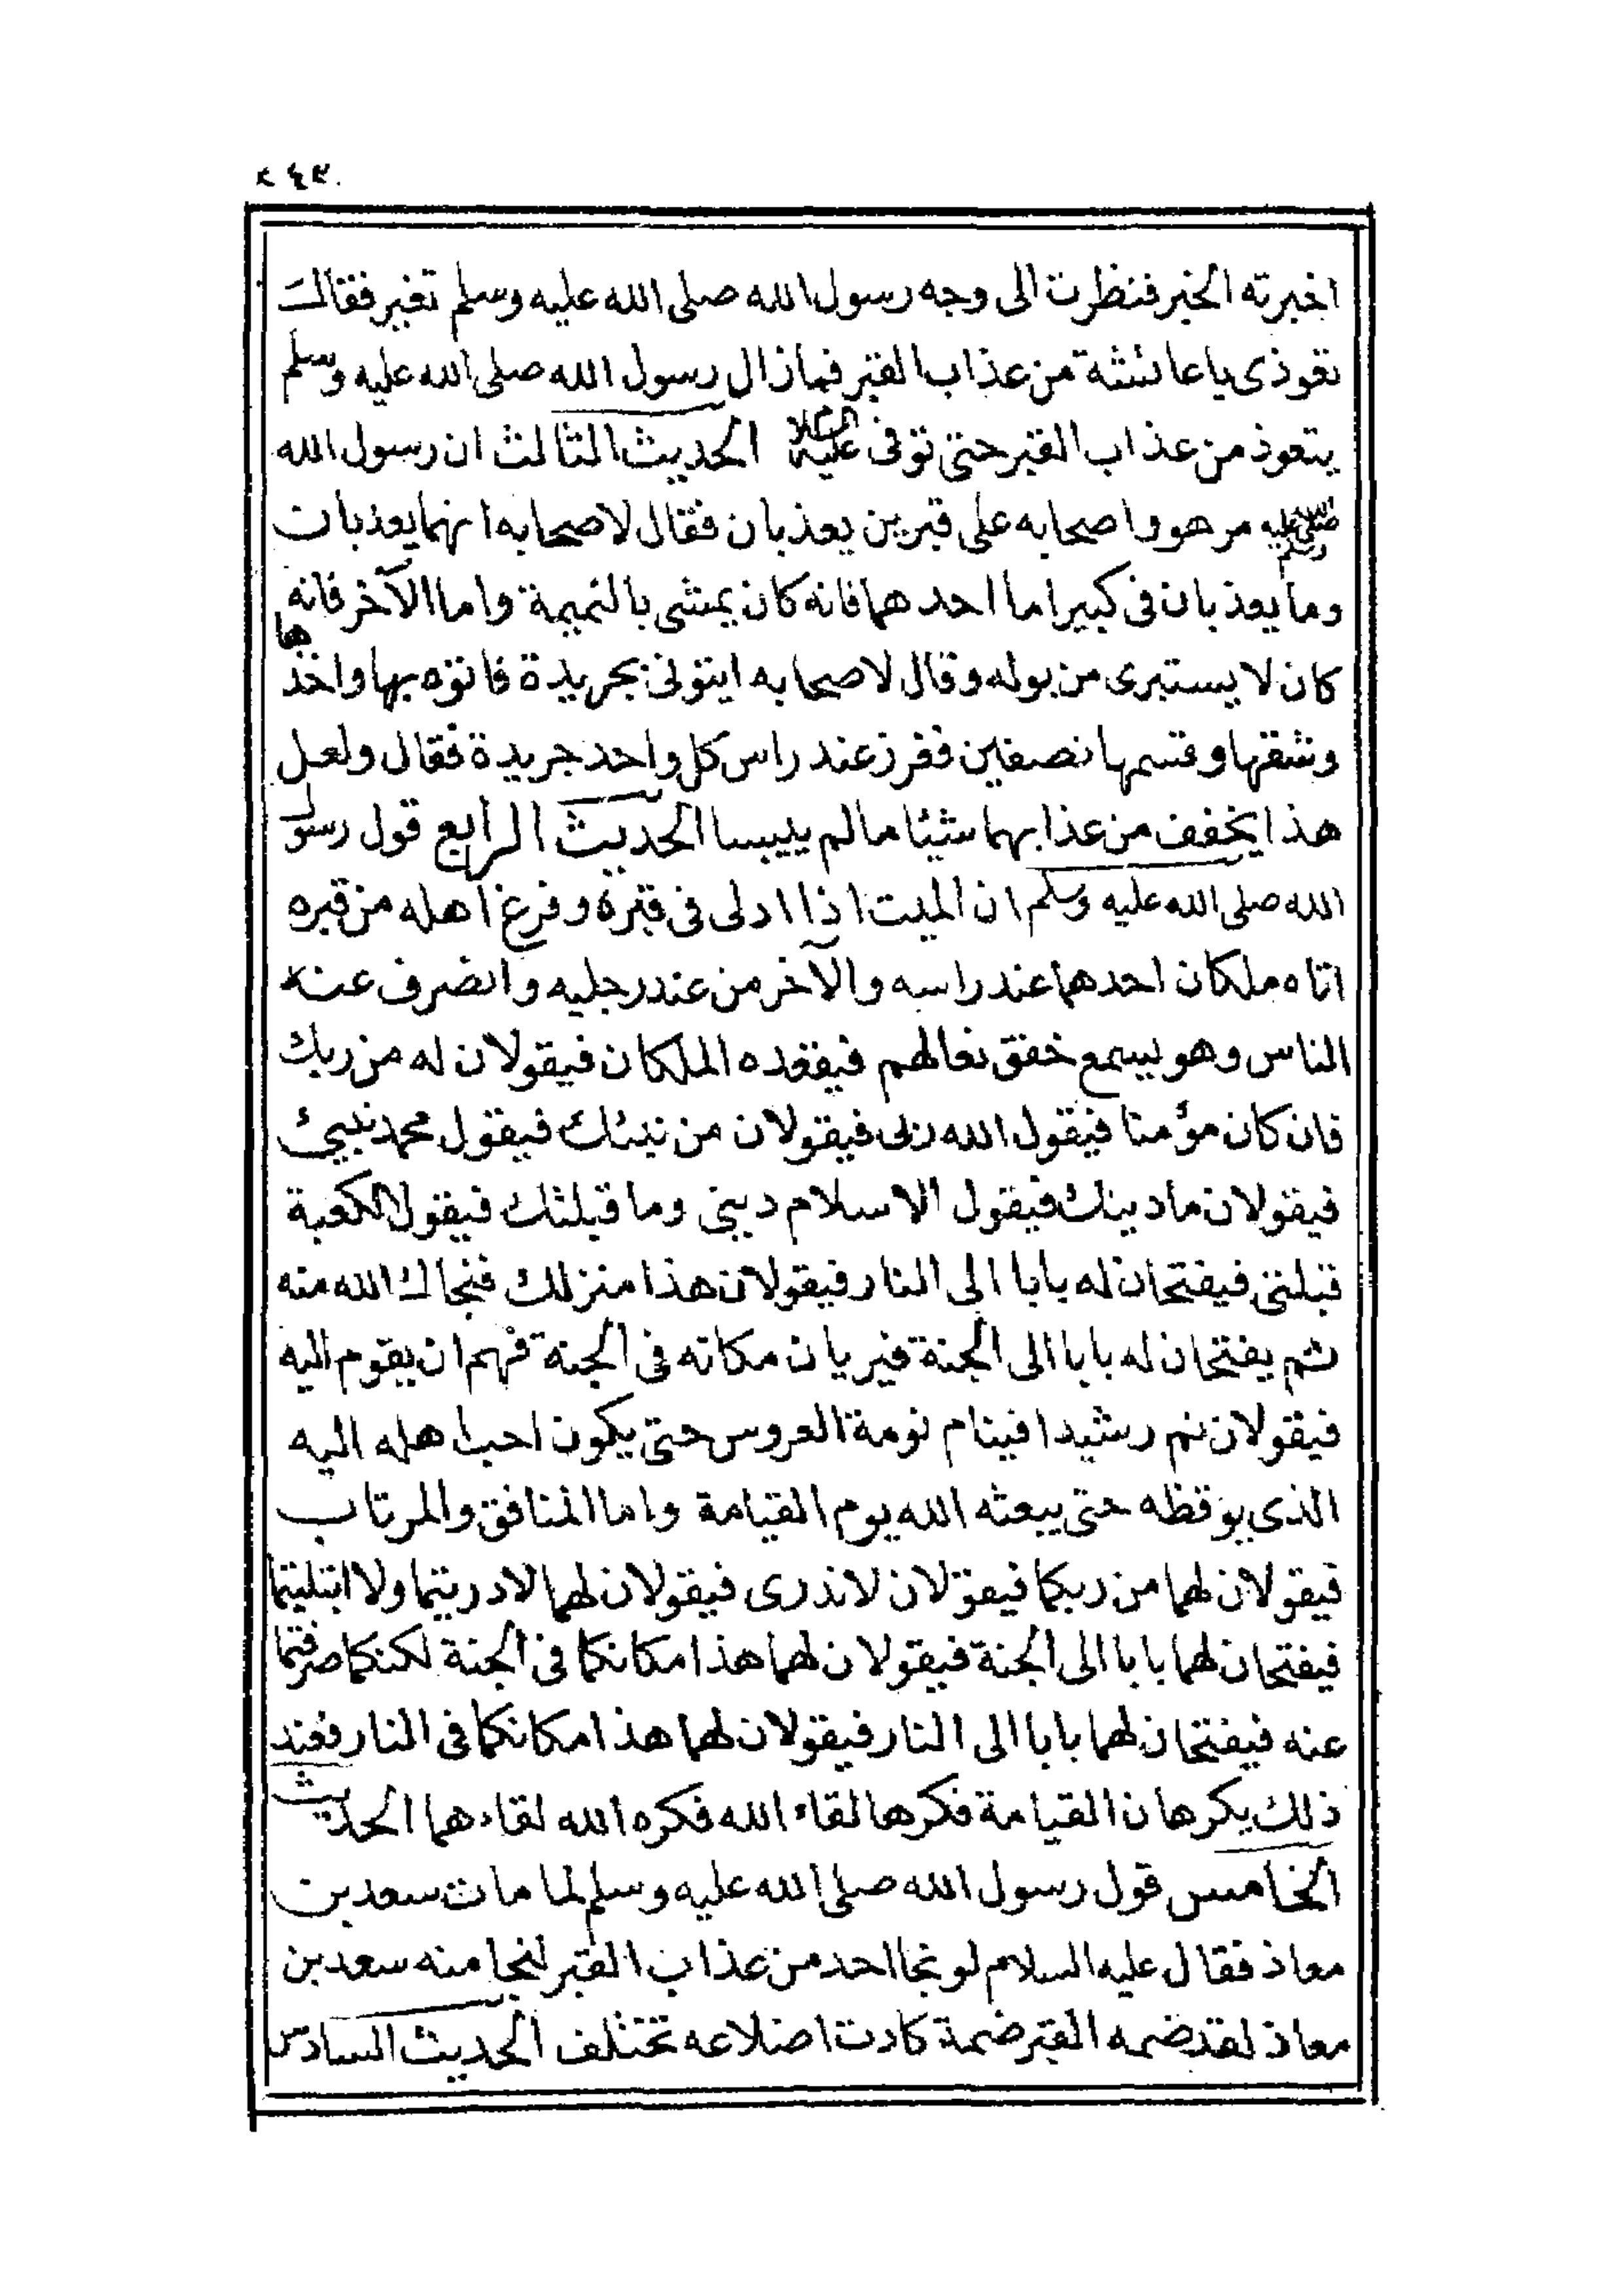 ٢٤٣
اخبرته الخبر فنظرت الى وجه رسول الله صلى الله عليه وسلم تغير فقال
تعوذى يا عائشة من عذاب القبر فما زال رسول الله صلى الله عليه وسلم
يتعوذ من عذاب القبر حتى توفى عليه السلام الحديث الثالث ان رسول الله
صلى الله عليه وسلم مر هو واصحابه على قبرين يعذبان فقال لاصحابه انهما يعذبان
وما يعذبان فى كبير اما احدهما فانه كان يمشى بالنميمة واما الآخر فانه
كان لا يستبرى من بوله وقال لاصحابه ايتونى بجريدة فاتوه بها واخذها
وشقها وقسمها نصفين فغرز عند راس كل واحد جريدة فقال ولعل
هذا يخفف من عذابهما شيئا ما لم ييبسا الحديث الرابع قول رسول
الله صلى الله عليه وسلم ان الميت اذا ادلى فى قبره وفرغ اهله من قبره
اتاه ملكان احدهما عند راسه والآخر من عند رجليه وانصرف عنه
الناس وهو يسمع خفق نعالهم فيقعده الملكان فيقولان له من ربك
فان كان مؤمنا فيقول الله ربى فيقولان من نبيك فيقول محمد نبيئ
فيقولان ما دينك فيقول الاسلام دينى وما قبلتك فيقول الكعبة
قبلتى فيفتحان له بابا الى النار فيقولان هذا منزلك فنجاك الله منه
ثم يفتحان له بابا الى الجنة فيريان مكانه فى الجنة فهم ان يقوم اليه
فيقولان نم رشيدا فينام نومة العروس حتى يكون احب اهله اليه
الذى يوقظه حتى يبعثه الله يوم القيامة واما المنافق والمرتاب
فيقولان لهما من ربكما فيقولان لا ندرى فيقولان لهما لا دريتما ولا ابتليتما
فيفتحان لهما بابا الى الجنة فيقولان لهما هذا مكانكما فى الجنة لكنكما صرفتما
عنه فيفتحان لهما بابا الى النار فيقولان لهما هذا مكانكما فى النار فعند
ذلك يكرهان القيامة فكرها لقاء الله فكره الله لقاءهما الحديث
الخامس قول رسول الله صلى الله عليه وسلم لما مات سعد بن
معاذ فقال عليه السلام لو نجا احد من عذاب القبر لنجا منه سعد بن
معاذ لقد ضمه القبر ضمة كادت اضلاعه تختلف الحديث السادس